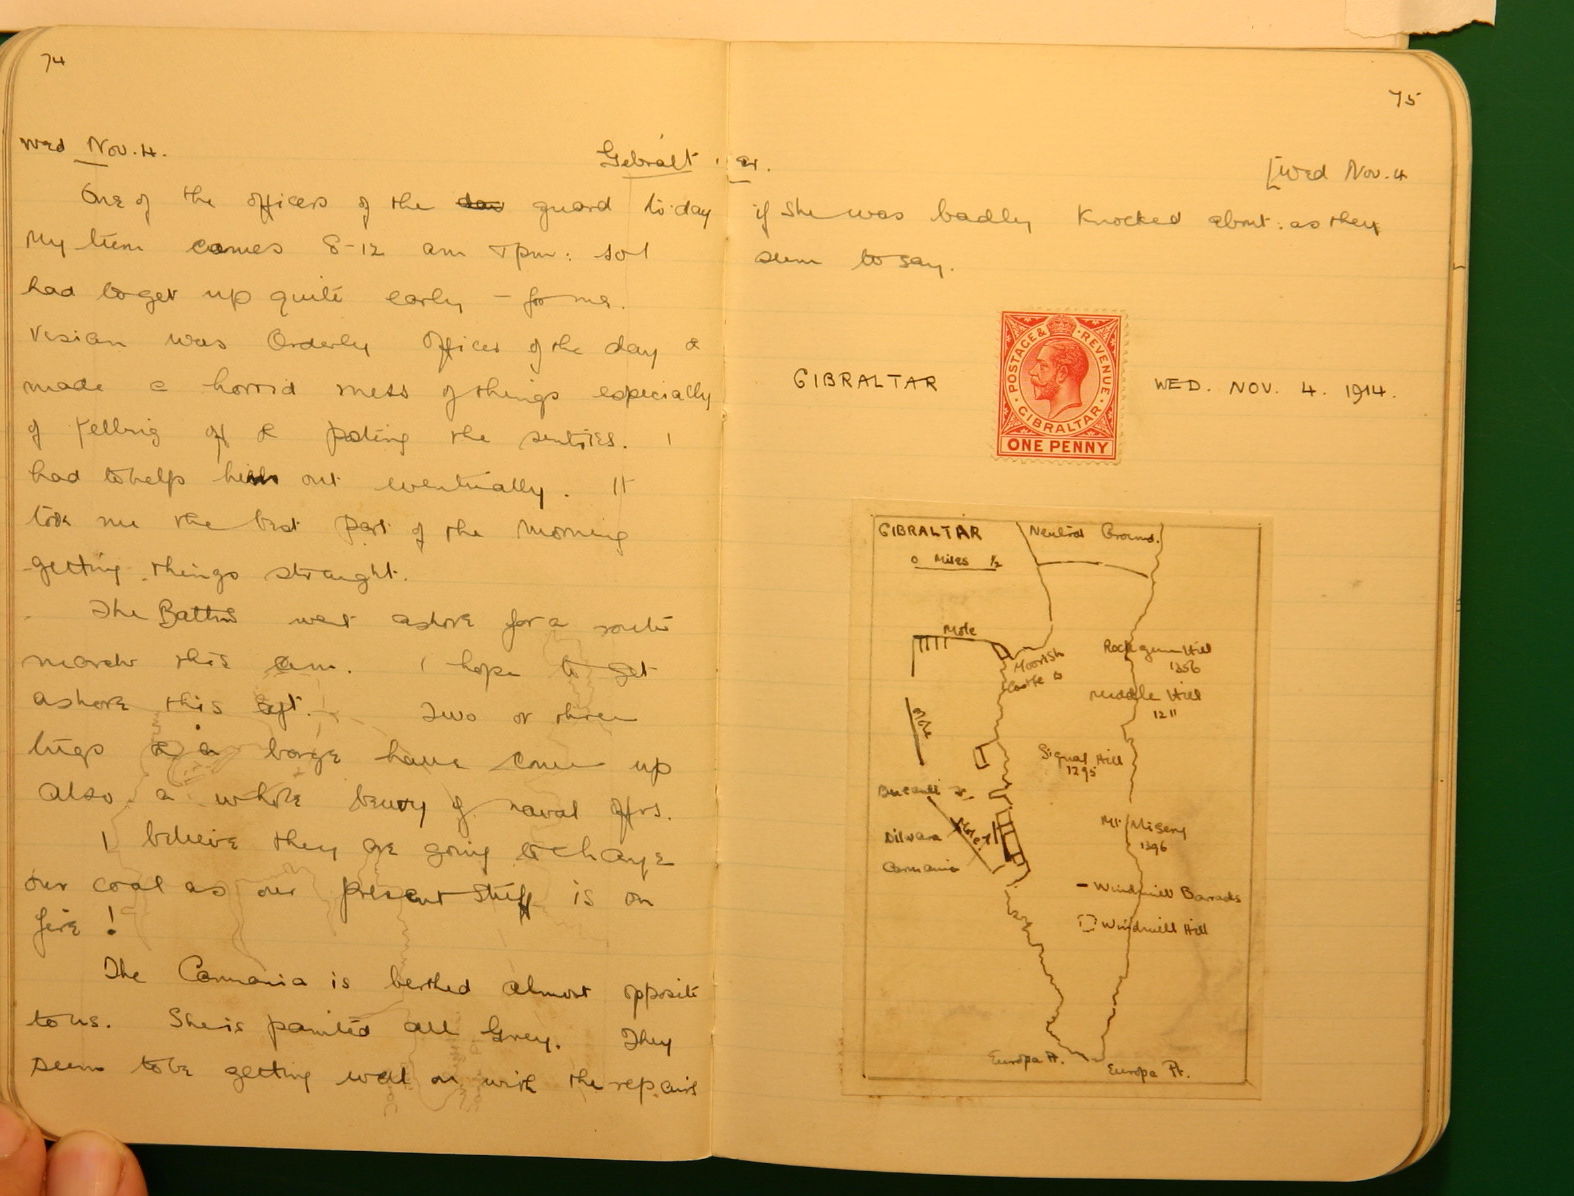 74
Wed Nov. 4.
Gibralt
One of the officers of the guard to-day
My turn comes 8-12 am & pm: so I
had to get up quite early – for me.
Vesian was Orderly Officer of the day &
made a horrid mess of things especially
of telling off & posting the sentries. I
had to help him out eventually. It
took me the best part of the morning
getting things straight.
The Battns went ashore for a route
march this am. I hope to get
ashore this aft. Two or three
tugs & a barge have come up
Also a whole bevvy of naval offrs.
I believe they are going to change
our coal as our present stuff is on
fire!
The Carmania is berthed almost opposite
to us. She is painted all Grey. They
seem to be getting well on with the repairs
75
ar.
[Wed Nov. 4
if she was badly knocked about: as they
seem to say.
POSTAGE & REVENUE
GIBRALTAR
ONE PENNY
GIBRALTAR
WED. NOV. 4. 1914.
GIBRALTAR
Neutral Ground.
0 Miles ½
Mole
Moorish
Castle
Rock gun Hill
1356
Middle Hill
1211
Mole
Signal Hill
1295
Mole
Dilwara
Carmania
Mt Misery
1396
Windmill Barracks
Windmill Hill
Europa Pt.
Europa Pt.